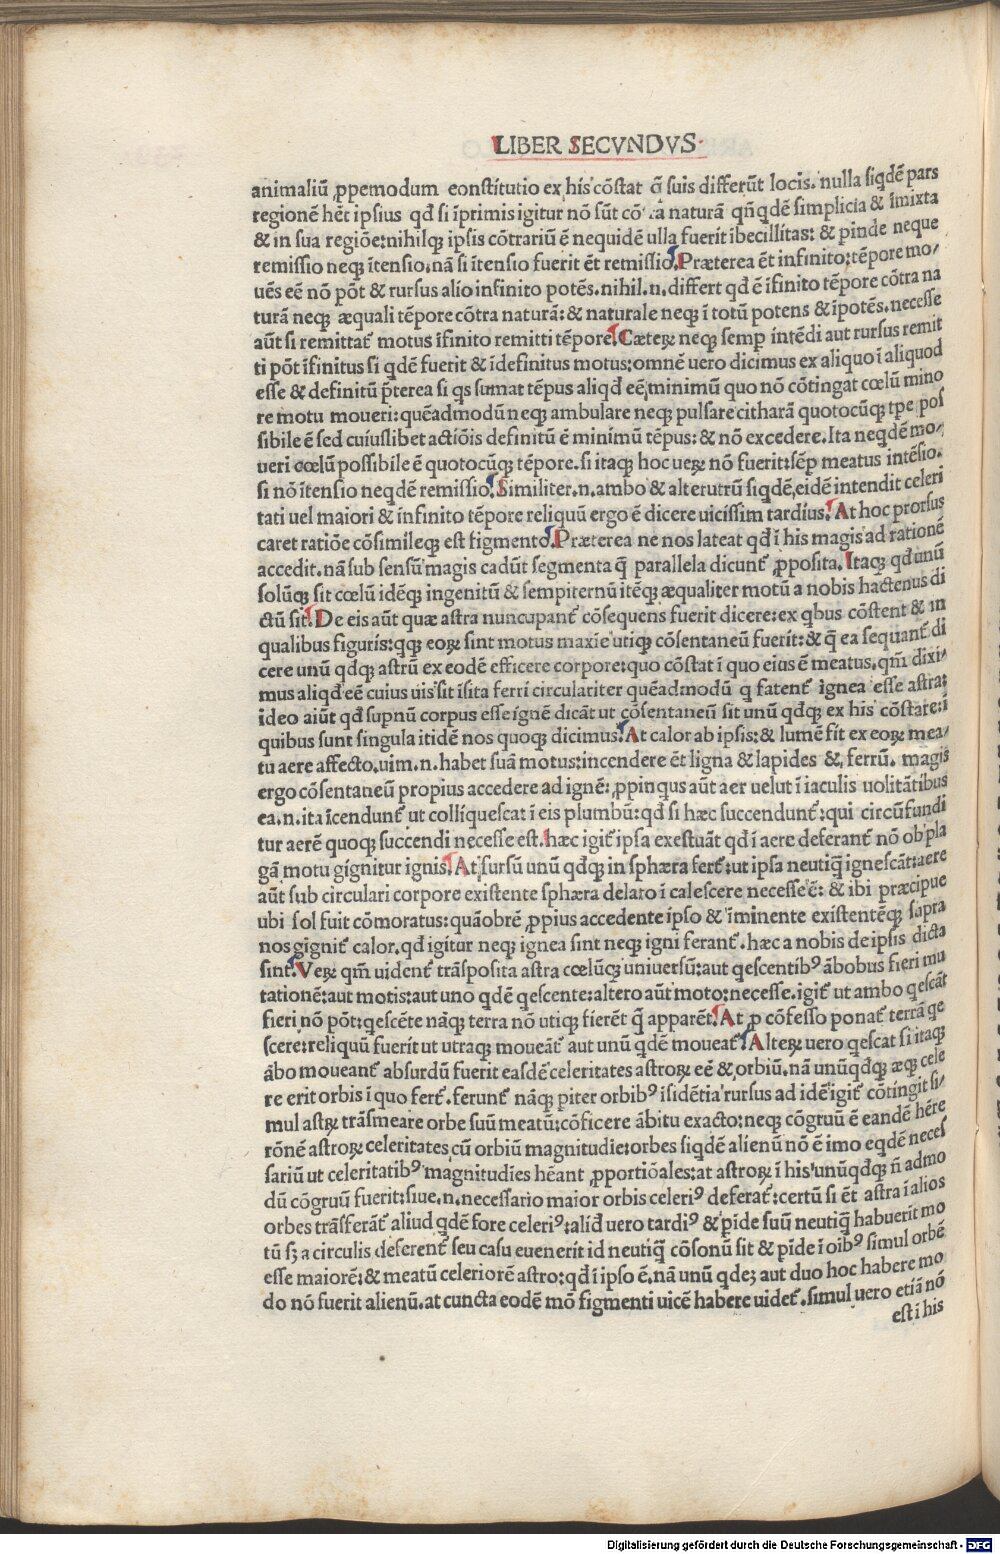 LIBER SECVNDVS
animaliū ꝓpemodum eonſtitutio ex his cōſtat q̄ ſuis differūt locis. nulla ſiqdē pars
regionē hēt ipſius qđ ſi īprimis igitur nō ſūt cō a naturā qñqdē ſimplicia & īmixta
& in ſua regiōe: nihilqꝫ ipſis cōtrariū ē nequidē ulla fuerit ībecillitas: & pinde neque
remiſſio neqꝫ ītenſio. nā ſi ītenſio fuerit ēt remiſſio. Præterea ēt infinito: tēpore mo/
uēs eē nō pōt & rurſus alio infinito potēs. nihil .n. differt qđ ē īfinito tēpore cōtra na
turā neqꝫ æquali tēpore cōtra naturā: & naturale neqꝫ ī totū potens & īpotēs. neceſſe
aūt ſi remittat̄ motus īfinito remitti tēpore. Cæteꝝ neqꝫ ſemꝑ intēdi aut rurſus remit
ti pōt īfinitus ſi qdē fuerit & īdefinitus motus: omnē uero dicimus ex aliquo ī aliquod
eſſe & definitū p̄terea ſi qs ſumat tēpus aliqđ eē, minimū quo nō cōtingat cœlū mino
re motu moueri: quēadmodū neqꝫ ambulare neqꝫ pulſare citharā quotocūqꝫ tpe poſ
ſibile ē ſed cuiuſlibet actiōis definitū ē minimū tēpus: & nō excedere. Ita neqdē mo/
ueri cœlū poſſibile ē quotocūqꝫ tēpore. ſi itaqꝫ hoc ueꝝ nō fuerit: ſēp meatus intēſio.
ſi nō ītenſio neqdē remiſſio. Similiter .n. ambo & alterutrū ſiqdē, eidē intendit celeri
tati uel maiori & infinito tēpore reliquū ergo ē dicere uiciſſim tardius. At hoc prorſus
caret ratiōe cōſimileqꝫ eſt figmento. Præterea ne nos lateat qđ ī his magis ad rationē
accedit. nā ſub ſenſū magis cadūt ſegmenta q̄ parallela dicunt̄ ꝓpoſita. Itaqꝫ qđ unū
ſolūqꝫ ſit cœlū idēqꝫ ingenitū & ſempiternū itēqꝫ æqualiter motū a nobis hactenus di
ctū ſit. De eis aūt quæ aſtra nuncupant̄ cōſequens fuerit dicere: ex qbus cōſtent & in
qualibus figuris: qqꝫ eoꝝ ſint motus maxie utiqꝫ cōſentaneū fuerit: & q̄ ea ſequant̄ di
cere unū qdqꝫ aſtrū ex eodē efficere corpore: quo cōſtat ī quo eius ē meatus. qm̄ dixi/
mus aliqđ eē cuius uis ſit īſita ferri circulariter quēadmodū q fatent̄ ignea eſſe aſtra:
ideo aiūt qđ ſupnū corpus eſſe ignē dicāt ut cōſentaneū ſit unū qdqꝫ ex his cōſtare: ī
quibus ſunt ſingula itidē nos quoqꝫ dicimus. At calor ab ipſis: & lumē fit ex eoꝝ mea/
tu aere affecto. uim .n. habet ſuā motus: incendere ēt ligna & lapides &, ferrū. magis
ergo cōſentaneū propius accedere ad ignē: ꝓpinqus aūt aer uelut ī iaculis uolitātibus
ea .n. ita īcendunt̄ ut colliqueſcat ī eis plumbū: qđ ſi hæc ſuccendunt̄: qui circūfundi
tur aerē quoqꝫ ſuccendi neceſſe eſt. hæc igit̄ ipſa exeſtuāt qđ ī aere deferant̄ nō ob pla
gā motu gignitur ignis. At ſurſū unū qđqꝫ in ſphæra fert̄: ut ipſa neutiq̄ igneſcāt: aere
aūt ſub circulari corpore exiſtente ſphæra delato ī caleſcere neceſſe ē: & ibi præcipue
ubi ſol fuit cōmoratus: quāobrē ꝓpius accedente ipſo & īminente exiſtentēqꝫ ſupra
nos gignit̄ calor. qđ igitur neqꝫ ignea ſint neqꝫ igni ferant̄. hæc a nobis de ipſis dicta
ſint. Veꝝ qm̄ uident̄ trāſpoſita aſtra cœlūqꝫ uniuerſū: aut qeſcentibꝰ ābobus fieri mu
tationē: aut motis: aut uno qdē qeſcente: altero aūt moto: neceſſe. igit̄ ut ambo qeſcāt
fieri nō pōt: qeſcēte nāqꝫ terra nō utiqꝫ fierēt q̄ apparēt. At ꝓ cōfeſſo ponat̄ terrā qe
ſcere: reliquū fuerit ut utraqꝫ moueāt̄ aut unū qdē moueat̄. Alteꝝ uero qeſcat ſi itaqꝫ
ābo moueant̄ abſurdū fuerit eaſdē celeritates aſtroꝝ eē & orbiū. nā unūqđqꝫ æqꝫ cele
re erit orbis ī quo fert̄. ferunt̄ nāqꝫ piter orbibꝰ īſidētia rurſus ad idē igit̄ cōtingit ſi/
mul aſtꝝ trāſmeare orbe ſuū meatū: cōficere ābitu exacto: neqꝫ cōgruū ē eandē hēre
rōnē aſtroꝝ celeritates cū orbiū magnitudie: orbes ſiqdē alienū nō ē imo eqdē neceſ
ſariū ut celeritatibꝰ magnitudies hēant ꝓportiōales: at aſtroꝝ ī his unūqđqꝫ ñ admo
dū cōgruū fuerit: ſiue .n. neceſſario maior orbis celeriꝰ deferat̄: certū ſi ēt aſtra ī alios
orbes trāſferāt̄ aliud qdē fore celeriꝰ: aliđ uero tardiꝰ & pīde ſuū neutiq̄ habuerīt mo
tū ſꝫ a circulis deferent̄ ſeu caſu euenerit id neutiq̄ cōſonū ſit & pīde ī oībꝰ ſimul orbē
eſſe maiorē: & meatū celeriorē aſtro: qđ ī ipſo ē. nā unū qdeꝫ aut duo hoc habere mo
do nō fuerit alienū. at cuncta eodē mō figmenti uicē habere uidet̄. ſimul uero etiā nō
eſt ī his
Digitalisierung gefördert durch die Deutsche Forschungsgemeinschaft - DFG